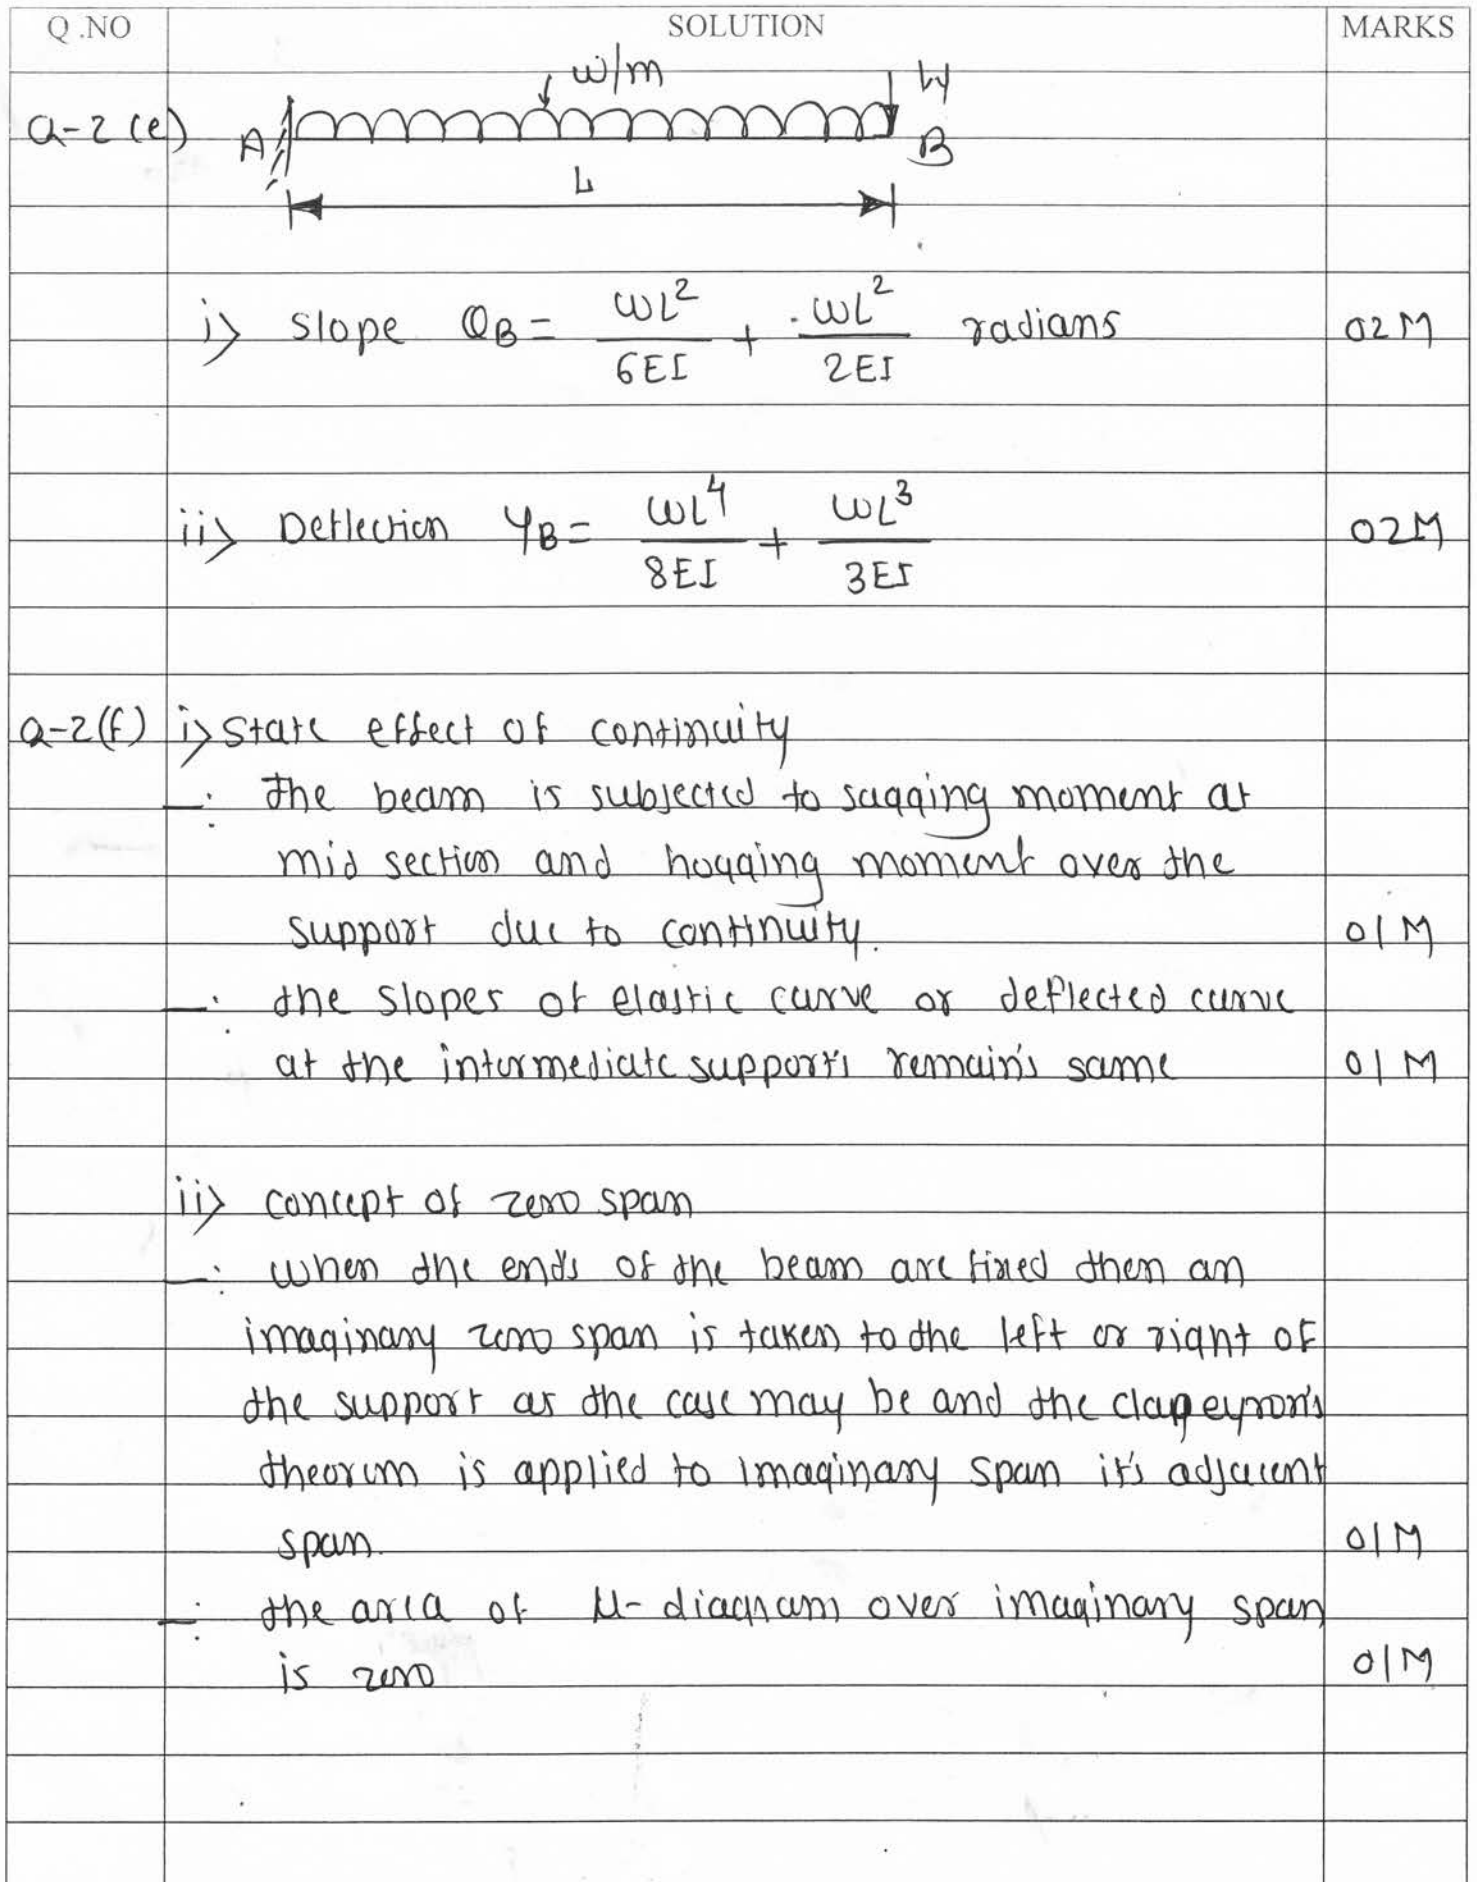 Q.NO SOLUTION MARKS
w/m W
Q-2(e) A B
L
i) slope θB = wL²/6EI + wL²/2EI radians 02M
ii) Deflection YB = wL⁴/8EI + wL³/3EI 02M
Q-2(f) i) State effect of continuity
—: the beam is subjected to sagging moment at
mid section and hogging moment over the
support due to continuity. 01M
—: the slopes of elastic curve or deflected curve
at the intermediate supports remain's same 01M
ii) concept of zero span
—: when the end's of the beam are fixed then an
imaginary zero span is taken to the left or right of
the support as the case may be and the clapeyron's
theorem is applied to imaginary span it's adjacent
span. 01M
—: the area of μ-diagram over imaginary span
is zero 01M